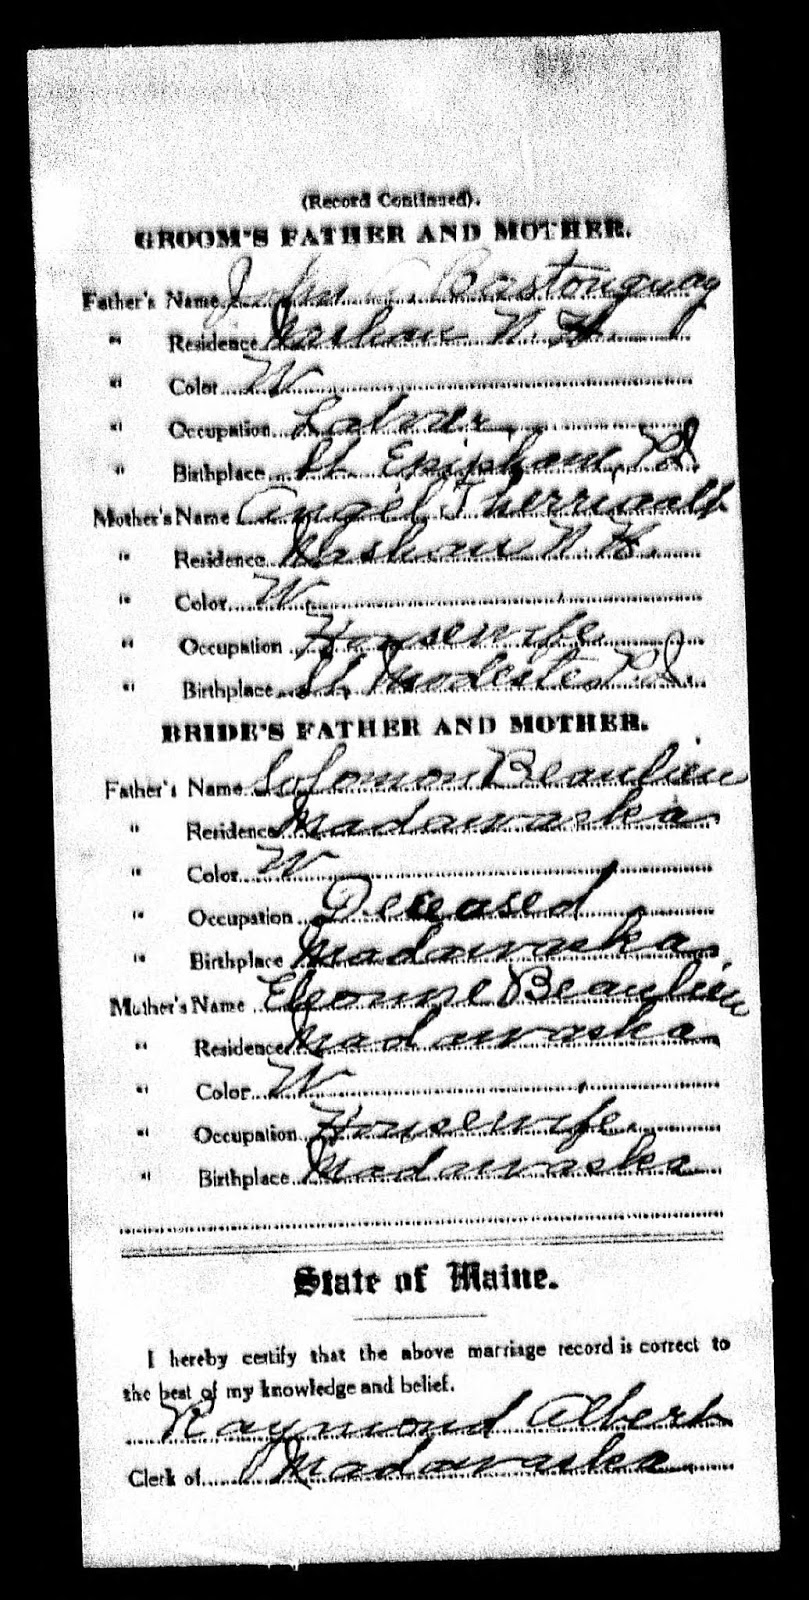 (Record Continued).
GROOM'S FATHER AND MOTHER.
Father's Name John A Castonguay
" Residence Nashua N. H.
" Color W
" Occupation Laborer
" Birthplace St. Epiphane, P.Q.
Mother's Name Angel Therriault
" Residence Nashua N. H.
" Color W
" Occupation Housewife
" Birthplace St. Modeste P.Q.
BRIDE'S FATHER AND MOTHER.
Father's Name Solomon Beaulieu
" Residence Madawaska
" Color W
" Occupation Deceased
" Birthplace Madawaska
Mother's Name Beaulieu
" Residence Madawaska
" Color W
" Occupation Housewife
" Birthplace Madawaska
State of Maine.
I hereby certify that the above marriage record is correct to
the best of my knowledge and belief.
Raymond Albert
Clerk of Madawaska